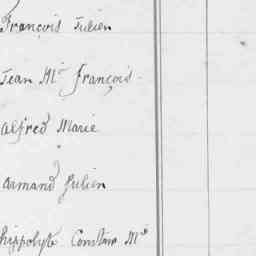 François Julien
Jean Mie François
Alfred Marie
Armand Julien
hippolyte Constan Mie